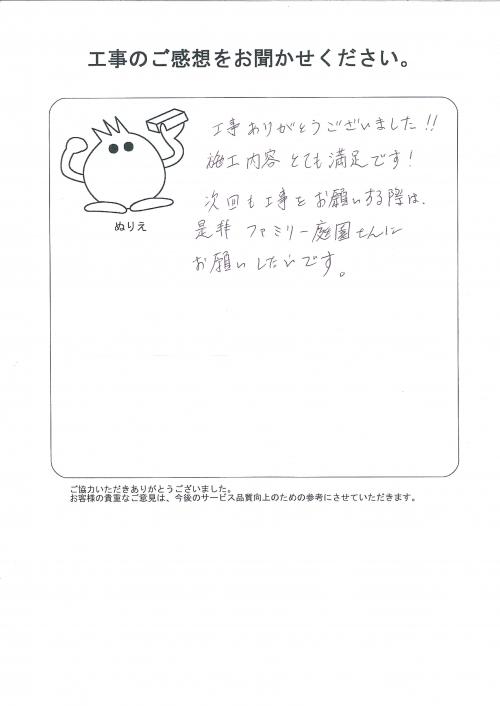 工事のご感想をお聞かせください。
工事ありがとうございました!!
施工内容とても満足です!
次回も工事をお願いする際は、
是非ファミリー庭園さんに
お願いしたいです。
ぬりえ
ご協力いただきありがとうございました。
お客様の貴重なご意見は、今後のサービス品質向上のための参考にさせていただきます。